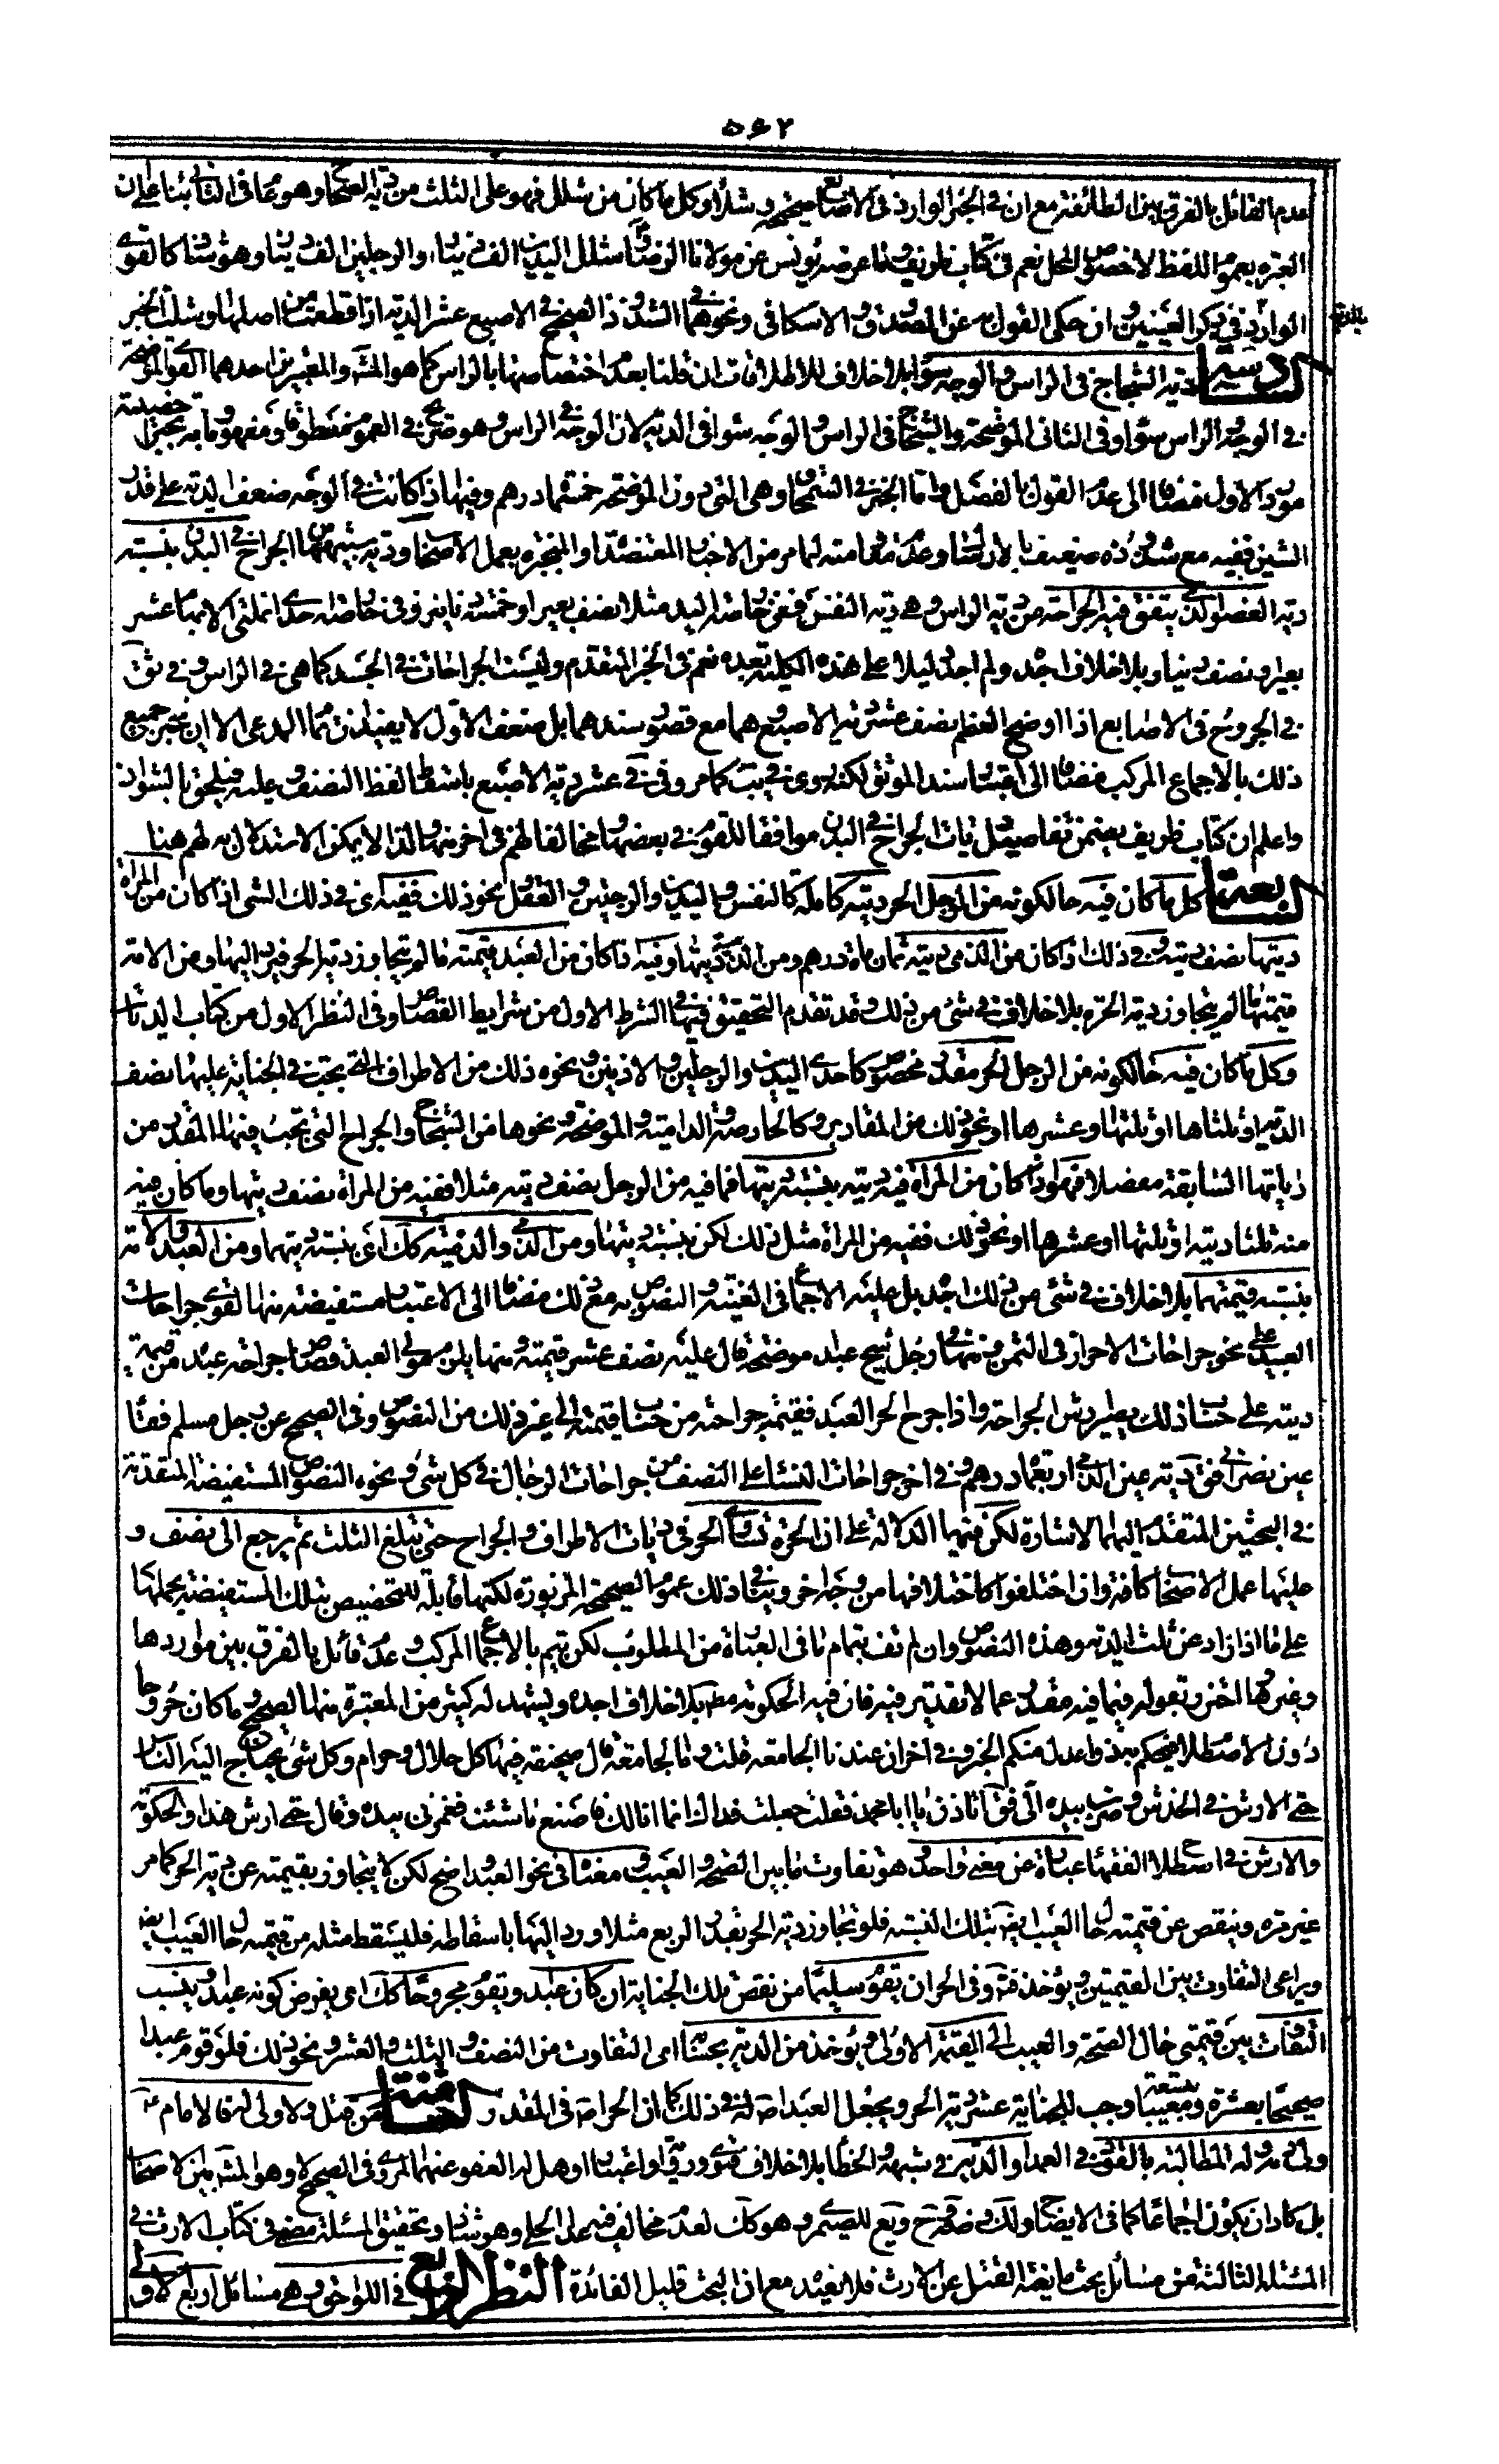 ٥٤٢
عدم القائل بالفرق بين الطائفة مع ان في الخبر الوارد في الاصابع صحيحة وشللا وكل ما كان من شلل فهو على الثلث من دية الصحاح وهو عام في الثلث بناء على ان
العبرة بعموم اللفظ لا خصوص المحل نعم في كتاب ظريف فيما عرضه يونس عن مولانا الرضا شلل اليدين الف دينار والرجلين الف دينار وهو شاذ كالقوي
الوارد في ذكر العينين وان حكى القول به عن الصدوق والاسكافي ونحوهما في الشذوذ الصحيح في الاصبع عشر الدية اذا قطعت من اصلها او شلت الخبر
السادسة دية الشجاج في الراس والوجه سواء بلا خلاف للاطلاقات ان قلنا بعدم اختصاصها بالراس كما هو المش والمعتبرين احدهما القوي الموضحة
في الوجه والراس سواء وفي الثاني الموضحة والشجاج في الراس والوجه سواء في الدية لان الوجه من الراس وهو صريح في العموم منطوقا ومفهوما به تخصيصه
مورد الاول مضافا الى عدم القول بالفصل واما الخبر في السمحاق وهي التي دون الموضحة خمسمائة درهم وفيها اذا كانت في الوجه ضعف الدية على قدر
الشين ففيه مع شذوذه ضعيف بالارسال وعدم مقاومته لما مر من الاخبار المعتضدة والمنجبرة بعمل الاصحاب ودية شبههما من الجراح في البدن بنسبة
دية العضو الذي يتفق فيه الجراحة من دية الراس وهي دية النفس ففي حارصة اليد مثلا نصف بعير او خمسة دنانير وفي حارصة احدى انملتي الابهام عشر
بعير او نصف دينار بلا خلاف اجده ولم اجد دليلا على هذه الكلية نعم في الخبر المتقدم وليست الجراحات في الجسد كما هي في الراس وفي ثق
في الجروح في الاصابع اذا اوضح العظم نصف عشر دية الاصبع وهما مع قصور سندهما بل ضعف الاول لا يفيدان تمام المدعى الا ان يتم جميع
ذلك بالاجماع المركب مضافا الى اعتبار سند الموثق لكنه روي في يب كما مر وفي في عشر دية الاصبع باسقاط لفظ النصف وعليه فيلحق بالشواذ
واعلم ان كتاب ظريف يتضمن تفاصيل ديات الجراح في البدن موافقا للقوم في بعضها ومخالفا لهم في اخر منها ولذا لا يمكن الاستدلال به لهم هنا
السابعة كل ما كان فيه حالكونه من الرجل الحر ديته كاملة كالنفس واليدين والرجلين والعقل ونحو ذلك ففيه اي في ذلك الشيء اذا كان من المراة
ديتها نصف ديته وفي ذلك اذا كان من الذمي ديته ثمان مائة درهم ومن الذمية ديتها وفيه اذا كان من العبد قيمته ما لم يتجاوز دية الحر فيرد اليها ومن الامة
قيمتها ما لم يتجاوز دية الحرة بلا خلاف في شيء من ذلك وقد تقدم التحقيق فيها في الشرط الاول من شرايط القصاص وفي النظر الاول من كتاب الديات
وكل ما كان فيه حالكونه من الرجل الحر مقدر مخصوص كاحدى اليدين والرجلين والاذنين ونحوه ذلك من الاطراف التي يجب في الجناية عليها نصف
الدية او ثلثاها او ثلثها او عشرها او نحو ذلك من المقادير وكالحارصة والدامية والموضحة ونحوها من الشجاج والجراح التي تجب فيها المقدر من
دياتها السابقة مفصلا فهو اذا كان من المراة فيه ديته بنسبة ديتها فما فيه من الرجل نصف ديته مثلا ففيه من المراة نصف ديتها وما كان فيه
منه ثلثا ديته او ثلثها او عشرها او نحو ذلك ففيه من المراة مثل ذلك لكن بنسبة ديتها ومن الذمي والذمية كك اي بنسبة ديتهما ومن العبد والامة
بنسبة قيمتهما بلا خلاف في شيء من ذلك اجده بل عليه الاجماع في الغنية والنصوص به مع ذلك مضافا الى الاعتبار مستفيضة منها القوي جراحات
العبيد على نحو جراحات الاحرار في الثمن ومنها في رجل شج عبدا موضحة قال عليه نصف عشر قيمته ومنها يلزم مولى العبد قصاص جراحة عبده من قيمة
ديته على حساب ذلك يصير ارش الجراحة واذا جرح الحر العبد فقيمة جراحته من حساب قيمته الى غير ذلك من النصوص وفي الصحيح عن رجل مسلم فقأ
عين نصراني فق دية عين الذمي اربعمائة درهم وفي اخر جراحات النساء على النصف من جراحات الرجال في كل شيء ونحوه النصوص المستفيضة المتقدمة
في البحثين المتقدم اليهما الاشارة لكن فيهما الدلالة على ان الحرة تساوي الحر في ديات الاطراف والجراح حتى تبلغ الثلث ثم يرجع الى نصف و
عليها عمل الاصحاب كافة وان اختلفوا كاختلافها من وجه اخر وينافي ذلك عموم الصحيحة المزبورة لكنها قابلة للتخصيص بتلك المستفيضة بحملها
على ما اذا زاد عن ثلث الدية وهذه النصوص وان لم تف بتمام ما في العبارة من المطلوب لكن يتم بالاجماع المركب وعدم قائل بالفرق بين مواردها
وغيرها واحترز بقوله فيما فيه مقدر عما لا تقدير فيه فان فيه الحكومة مط بلا خلاف اجده ويشهد له كثير من المعتبرة منها الصحيح ما كان جروحا
دون الاصطلام فيحكم به ذوا عدل منكم الخبر وفي اخر ان عندنا الجامعة قلت وما الجامعة قال صحيفة فيها كل حلال وحرام وكل شيء يحتاج اليه الناس
حتى الارش في الخدش وضرب بيده الي فق اتاذن يا ابا محمد فقلت جعلت فداك انما انا لك فاصنع ما شئت فغمزني بيده وقال حتى ارش هذا والحكومة
والارش في اصطلاح الفقهاء عبارة عن معنى واحد وهو تفاوت ما بين الصحة والعيب ومعناه في نحو العبد واضح لكن لا يتجاوز بقيمته عن دية الحر كما مر
غير مرة وينقص عن قيمته حال العيب ايض بتلك النسبة فلو تجاوز دية الحر بقدر الربع مثلا ورد اليها باسقاطه فليسقط مثله من قيمته حال العيب ايض
ويراعى التفاوت بين القيمتين ويؤخذ فق وفي الحر ان يقوم سليما من نقص تلك الجناية ان كان عبدا ويقوم مجروحا كك اي يفرض كونه عبدا وينسب
التفاوت بين قيمتي حال الصحة والعيب الى القيمة الاولى ويؤخذ من الدية بحسابه اي التفاوت من النصف والثلث والعشر ونحو ذلك فلو قوم عبدا
صحيحا بعشرة ومعيبا بتسعة وجب للجناية عشر دية الحر ويجعل العبد اصلا له في ذلك كما ان الحر اصل في المقدر الثامنة من قتل ولا ولي له فالامام
ولي دمه وله المطالبة بالقود في العمد او الدية في شبهه والخطأ بلا خلاف فتوى ورواية واعتبارا وهل له العفو عنهما المروي في الصحيح لا وهو المش بين الاصحاب
بل كاد ان يكون اجماعا كما في الايضاح ولك وضه وصرح ويع للصيمري وهو كك لعدم مخالف فيه عدا الحلي وهو شاذ وتحقيق المسئلة مضى في كتاب الارث في
المسئلة الثالثة من مسائل بحث ما يمنع القتل عن الارث فلا نعيد مع ان البحث قليل الفائدة النظر الرابع في اللواحق وهي مسائل اربع الاولى